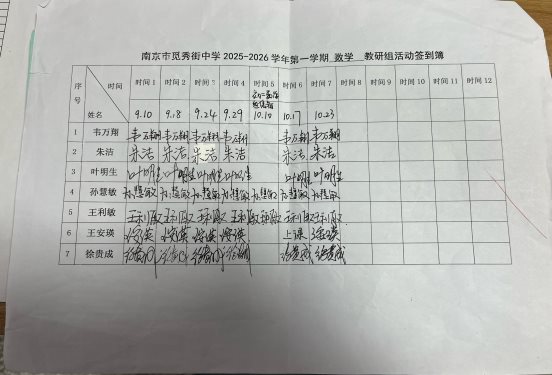 南京市觅秀街中学 2025-2026 学年第一学期 数学 教研组活动签到簿
序号 时间 姓名 时间 1 时间 2 时间 3 时间 4 时间 5 时间 6 时间 7 时间 8 时间 9 时间 10 时间 11 时间 12
9.10 9.18 9.24 9.29 10.10 10.17 10.23
1 韦万翔 韦万翔 韦万翔 韦万翔 韦万翔 韦万翔 韦万翔
2 朱洁 朱洁 朱洁 朱洁 朱洁 朱洁 朱洁
3 叶明生 叶明生 叶明生 叶明生 叶明生 叶明生 叶明生
4 孙慧敏 孙慧敏 孙慧敏 孙慧敏 孙慧敏 孙慧敏 孙慧敏 孙慧敏
5 王利敏 王利敏 王利敏 王利敏 王利敏 王利敏 王利敏 王利敏
6 王安瑛 上课
7 徐贵成 徐贵成 徐贵成